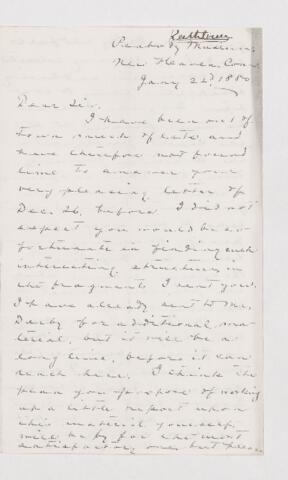 Peabody Museum
New Haven, Conn
Jany 22d, 1880
Dear Sir.
I have been out of
town much of late, and
have therefore not found
time to answer your
very pleasing letter of
Dec. 26, before. I did not
expect you would be so
fortunate in finding such
interesting structures in
the fragments I sent you.
I have already sent to Mr.
Derby for additional ma-
terial, but it will be a
long time, before it can
reach here. I think the
plan you propose of working
up a little report upon
this material yourself,
will be by far the most
satisfactory one, but please